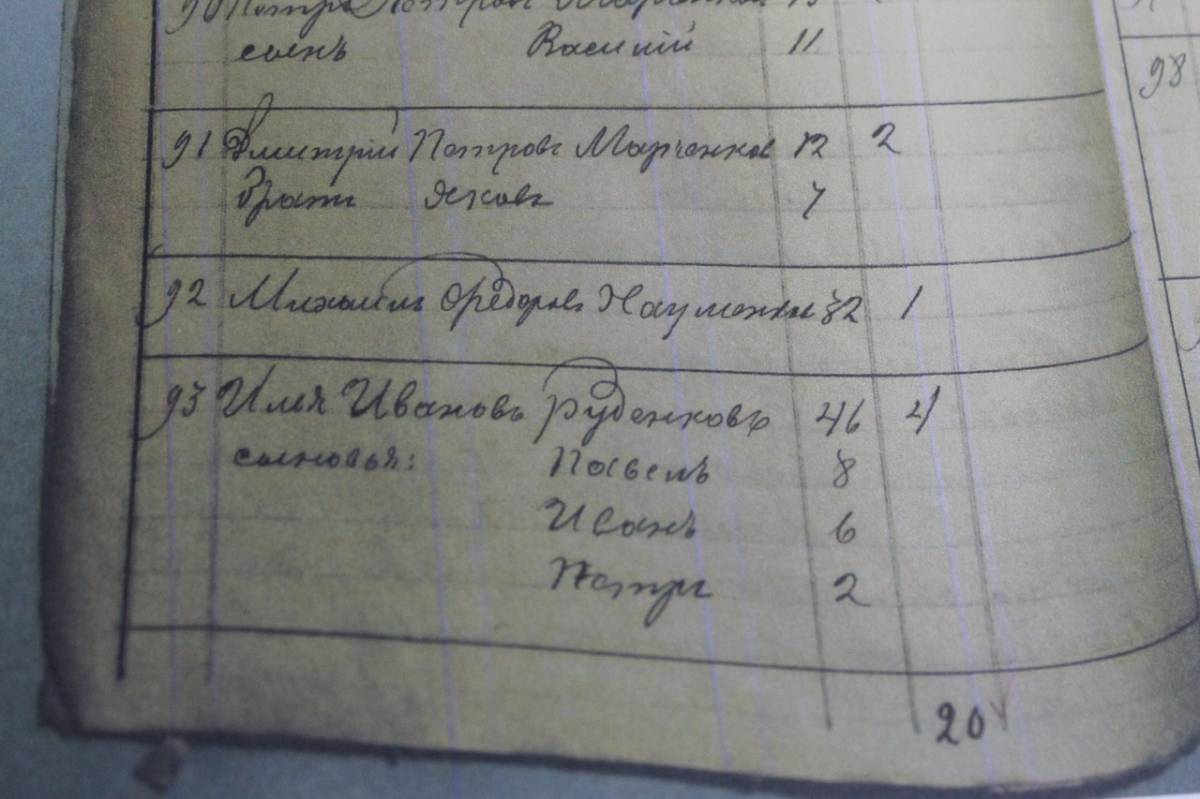 90 Петръ Петровъ Марченков
сынъ Василій 11
91 Дмитрій Петровъ Марченков 12 2
братъ Яковъ 7
92 Михаилъ Федоровъ Науменко 32 1
93 Илья Ивановъ Руденковъ 46 4
сыновья: Павелъ 8
Иванъ 6
Петръ 2
20
98